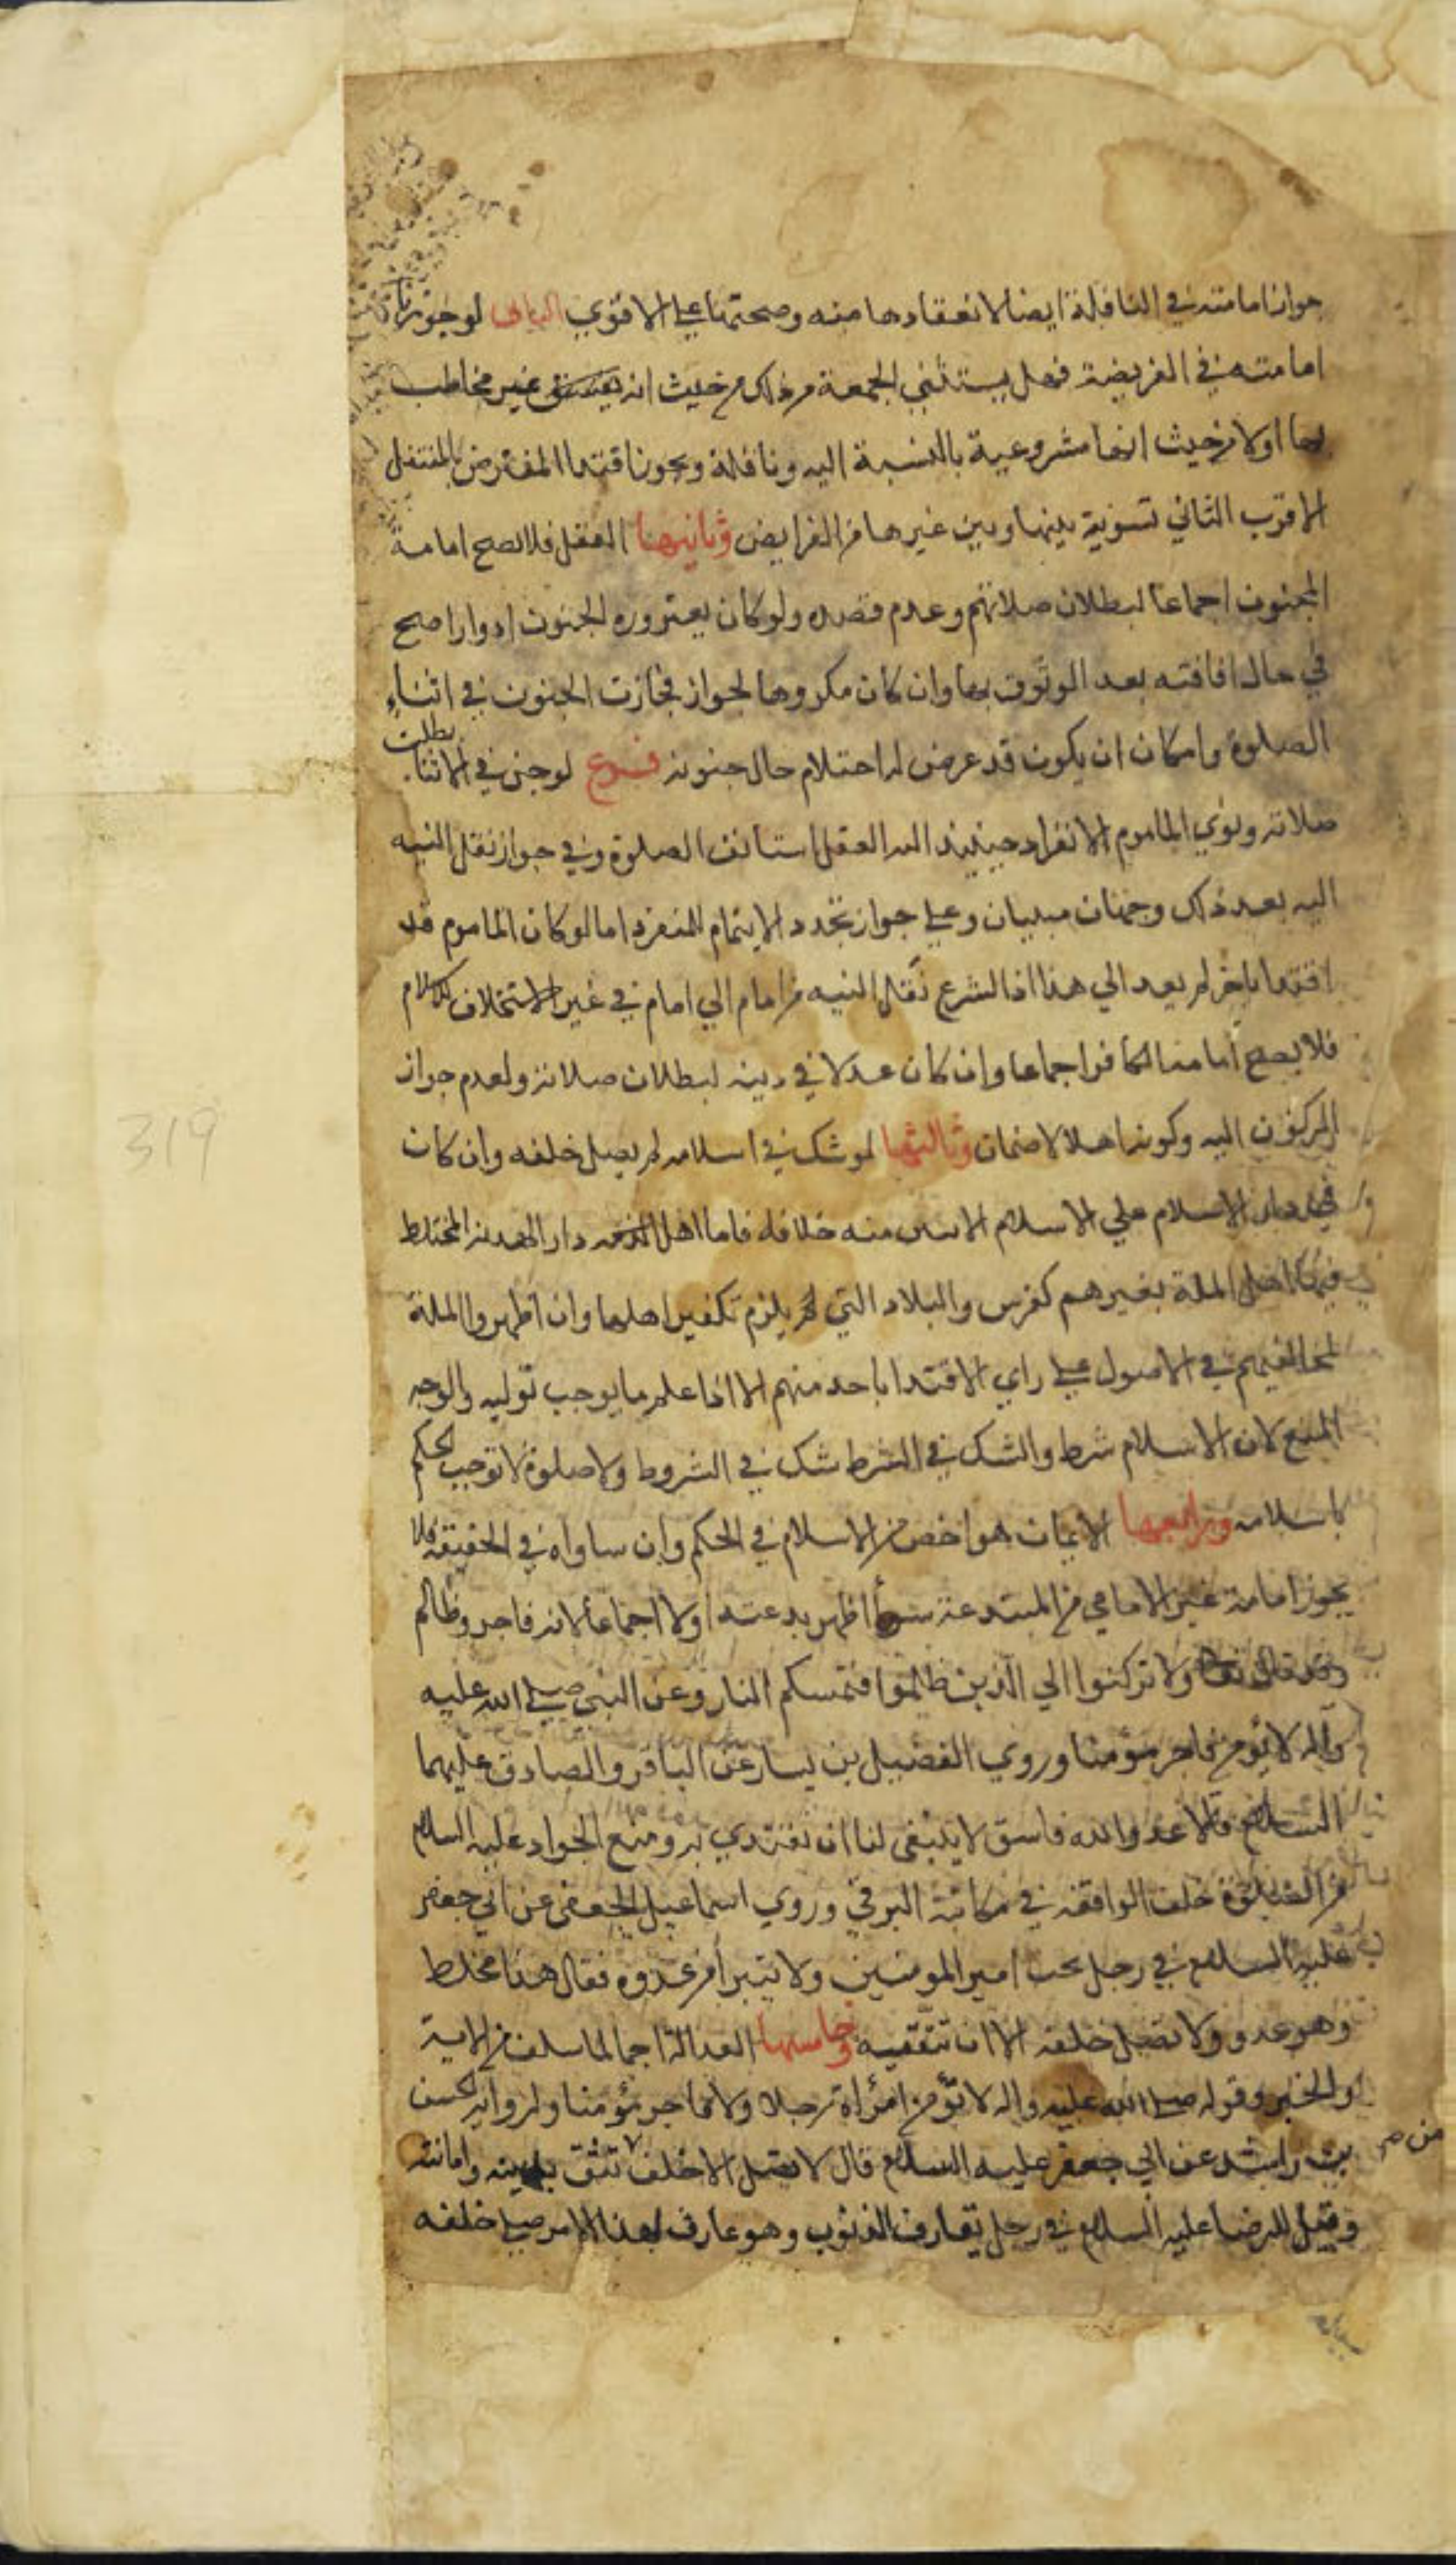 جواز امامته في النافلة ايضا لانعقادها منه وصحتها علي الاقوي الثاني لو جوزنا
امامته في الفريضة فهل يستثني الجمعة من ذلك من حيث انه غير مخاطب
بها اولا من حيث انها مشروعية بالنسبة اليه ونافلة ويجوز اقتدا المفترض بالمتنفل
الاقرب الثاني تسوية بينها وبين غيرها من الفرايض وثانيها العقل فلا تصح امامة
المجنون اجماعا لبطلان صلاتهم وعدم قصده ولو كان يعتروره الجنون ادوارا صح
في حال افاقته بعد الوثوق بها وان كان مكروها لجواز الجنون في اثناء
الصلوة وامكان ان يكون قد عرض له احتلام حال جنونه فرع لو جن في الاثناء بطلت
صلاته ونوي الماموم الانفراد حينيذ العقل استانف الصلوة وفي جواز نقل النيه
اليه بعد ذلك وجهان مبنيان وعلي جواز تجدد الايتمام للمنفرد اما لو كان الماموم قد
اقتدا باخر لم يعد الي هذا اذا لشرع نقل النيه من امام الي امام في غير الاستخلاف
فلا يصح امامة الكافر اجماعا وان كان عدلا في دينه لبطلان صلاته ولعدم جواز
الركون اليه وكونه اهلا لا ضمان وثالثها لو شك في اسلامه لم يصل خلفه وان كان
في دار الاسلام علي الاسلام منه خلافه فاما اهل دار الهدنة المختلط
فيها اهل الملة بغيرهم كفرس والبلاد التي لم يلزم تكفير اهلها وان اظهروا الملة
لمخالفيهم في الاصول علي راي الاقتدا باحد منهم الا اذا علم ما يوجب توليه والوجه
المنع لان الاسلام شرط والشك في الشرط شك في الشروط ولا صلوة لا توجب الحكم
باسلامه ورابعها الايمان هو اخص من الاسلام في الحكم وان ساواه في الحقيقة فلا
يجوز امامة غير الامامي من المبتدعة اظهر بدعته اولا اجماعا لانه فاجر وظالم
وقد قال تعالي ولا تركنوا الي الذين ظلموا فتمسكم النار وعن النبي صلي الله عليه
واله لا يؤمن فاجر مؤمنا وروي الفضيل بن يسار عن الباقر والصادق عليهما
السلام قالا عدو الله فاسق لا ينبغي لنا ان نقتدي به ومنع الجواد عليه السلام
من الصلوة خلف الواقفه في مكاتبة البرقي وروي اسماعيل الجعفي عن ابي جعفر
عليه السلام في رجل يحب امير المومنين ولا يتبرأ من عدوه فقال هذا مخلط
وهو عدو ولا تصل خلفه الا ان تتقيه وخامسها العدالة اجماعا لما سلف من الاية
والخبر وقوله صلي الله عليه واله لا تؤمن امرأة رجلا ولا فاجر مؤمنا ولرواية الحسن
بن راشد عن ابي جعفر عليه السلام قال لا تصل الا خلف من تثق بدينه وامانته
وقيل للرضا عليه السلام في رجل يقارف الذنوب وهو عارف بهذا الامر صلي خلفه
319